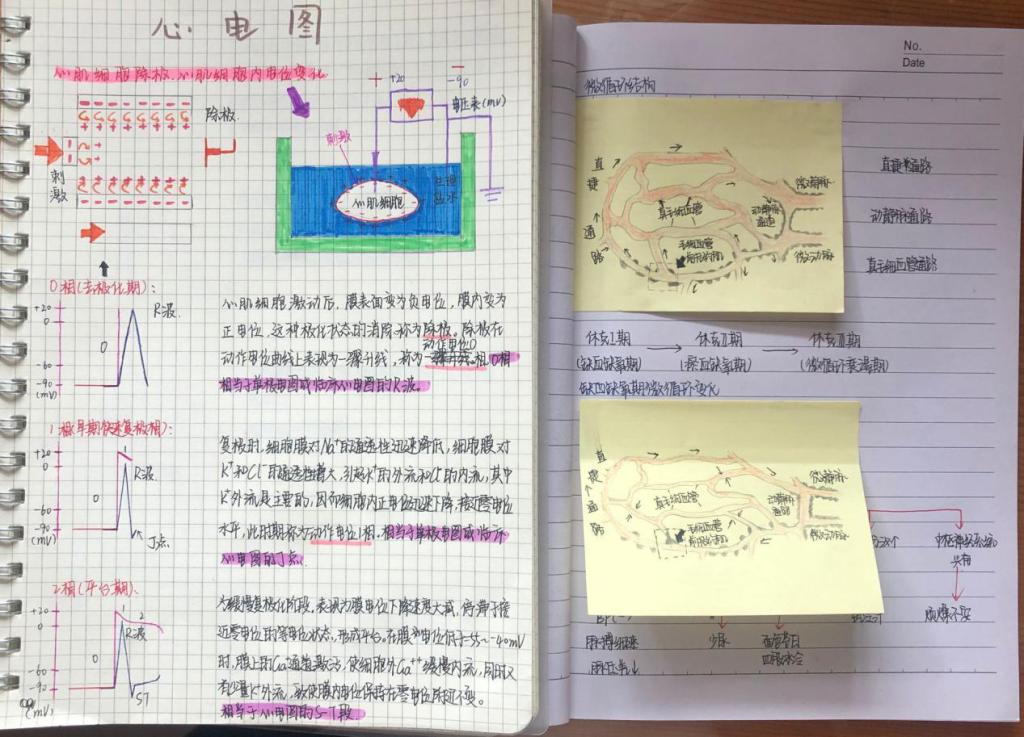 心电图
心肌细胞除极.心肌细胞内电位变化
+ +20 -
-90
电压表(mV)
除极
刺激
刺激
心肌细胞
生理
盐水
0相(去极化期):
R波
+20
0
0
-60
-90
(mV)
心肌细胞激动后，膜表面变为负电位，膜内变为
正电位，这种极化状态的消除称为除极。除极在
动作电位曲线上表现为一骤升线，称为
动作电位0
相 0相
相当于单极电图或临床心电图的R波。
1相(早期快速复极相):
+20
1
0
R波
0
-60
-90
(mV)
J点
复极时，细胞膜对Na⁺的通透性迅速降低，细胞膜对
K⁺和Cl⁻的通透性增大，引起K⁺的外流和Cl⁻的内流，其中
K⁺外流是主要的，因而细胞内正电位迅速下降，接近零电位
水平，此时期称为动作电位1相.相当于单极电图或临床
心电图的J点.
2相(平台期):
+20
1
2
0
R波
0
-60
-90
(mV)
ST
为缓慢复极化阶段，表现为膜电位下降速度大减，停滞于接
近零电位的等电位状态，形成平台。在膜电位低于-55~-40mV
时，膜上的Ca⁺⁺通道激活，使细胞外Ca⁺⁺缓慢内流，同时又
有少量K⁺外流，致使膜内电位保持在零电位附近不变。
相当于心电图的S-T段.
No.
Date
微循环结构
直捷通路
真毛细血管
动静脉
通道
微静脉
毛细血管
前括约肌
微动脉
直捷通路
动静脉通路
真毛细血管通路
休克I期 → 休克II期 → 休克III期
(缺血缺氧期) (淤血缺氧期) (微循环衰竭期)
缺血缺氧期微循环变化
直捷通路
真毛细血管
动静脉
通道
微静脉
毛细血管
前括约肌
微动脉
中枢神经系统
烦躁不安
脉搏细速
脉压差↓
少尿
面色苍白
四肢冰冷